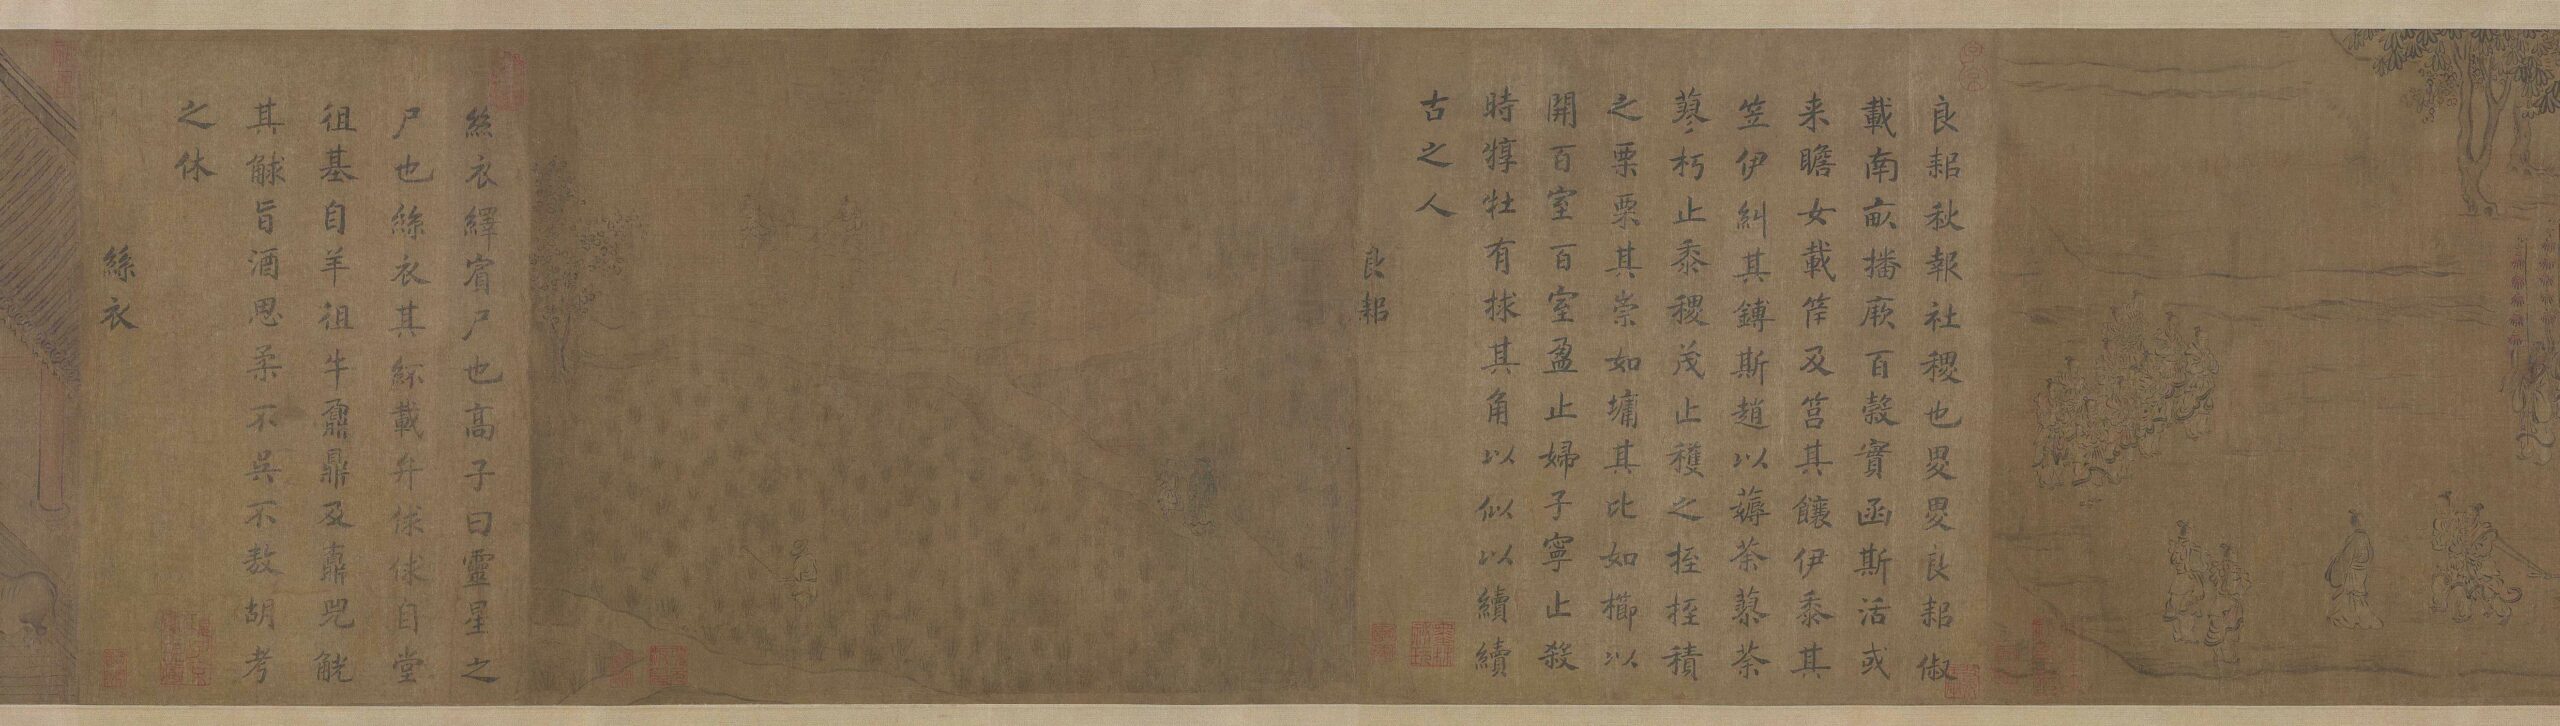 良耜秋報社稷也畟畟良耜俶
載南畝播厥百穀實函斯活或
来瞻女載筐及筥其饟伊黍其
笠伊糾其鎛斯趙以薅荼蓼荼
蓼朽止黍稷茂止穫之挃挃積
之栗栗其崇如墉其比如櫛以
開百室百室盈止婦子寧止殺
時犉牡有捄其角以似以續續
古之人
良耜
絲衣繹賓尸也高子曰靈星之
尸也絲衣其紑載弁俅俅自堂
徂基自羊徂牛鼐鼎及鼒兕觥
其觩旨酒思柔不吳不敖胡考
之休
絲衣